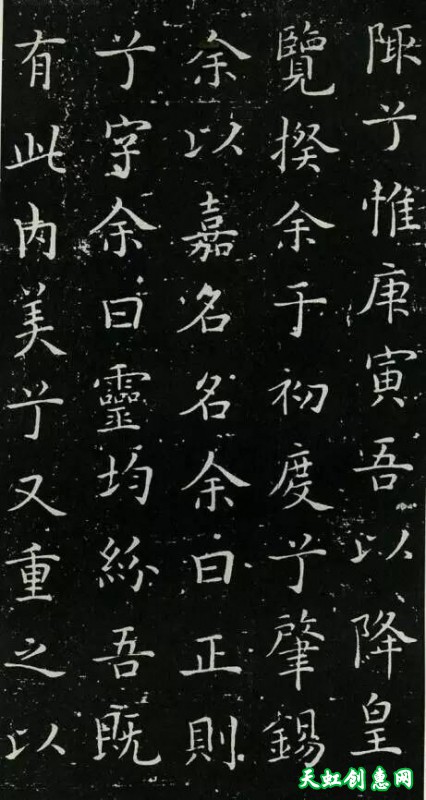 陬兮惟庚寅吾以降皇
覽揆余于初度兮肇錫
余以嘉名名余曰正則
兮字余曰靈均紛吾既
有此内美兮又重之以
天虹创意网